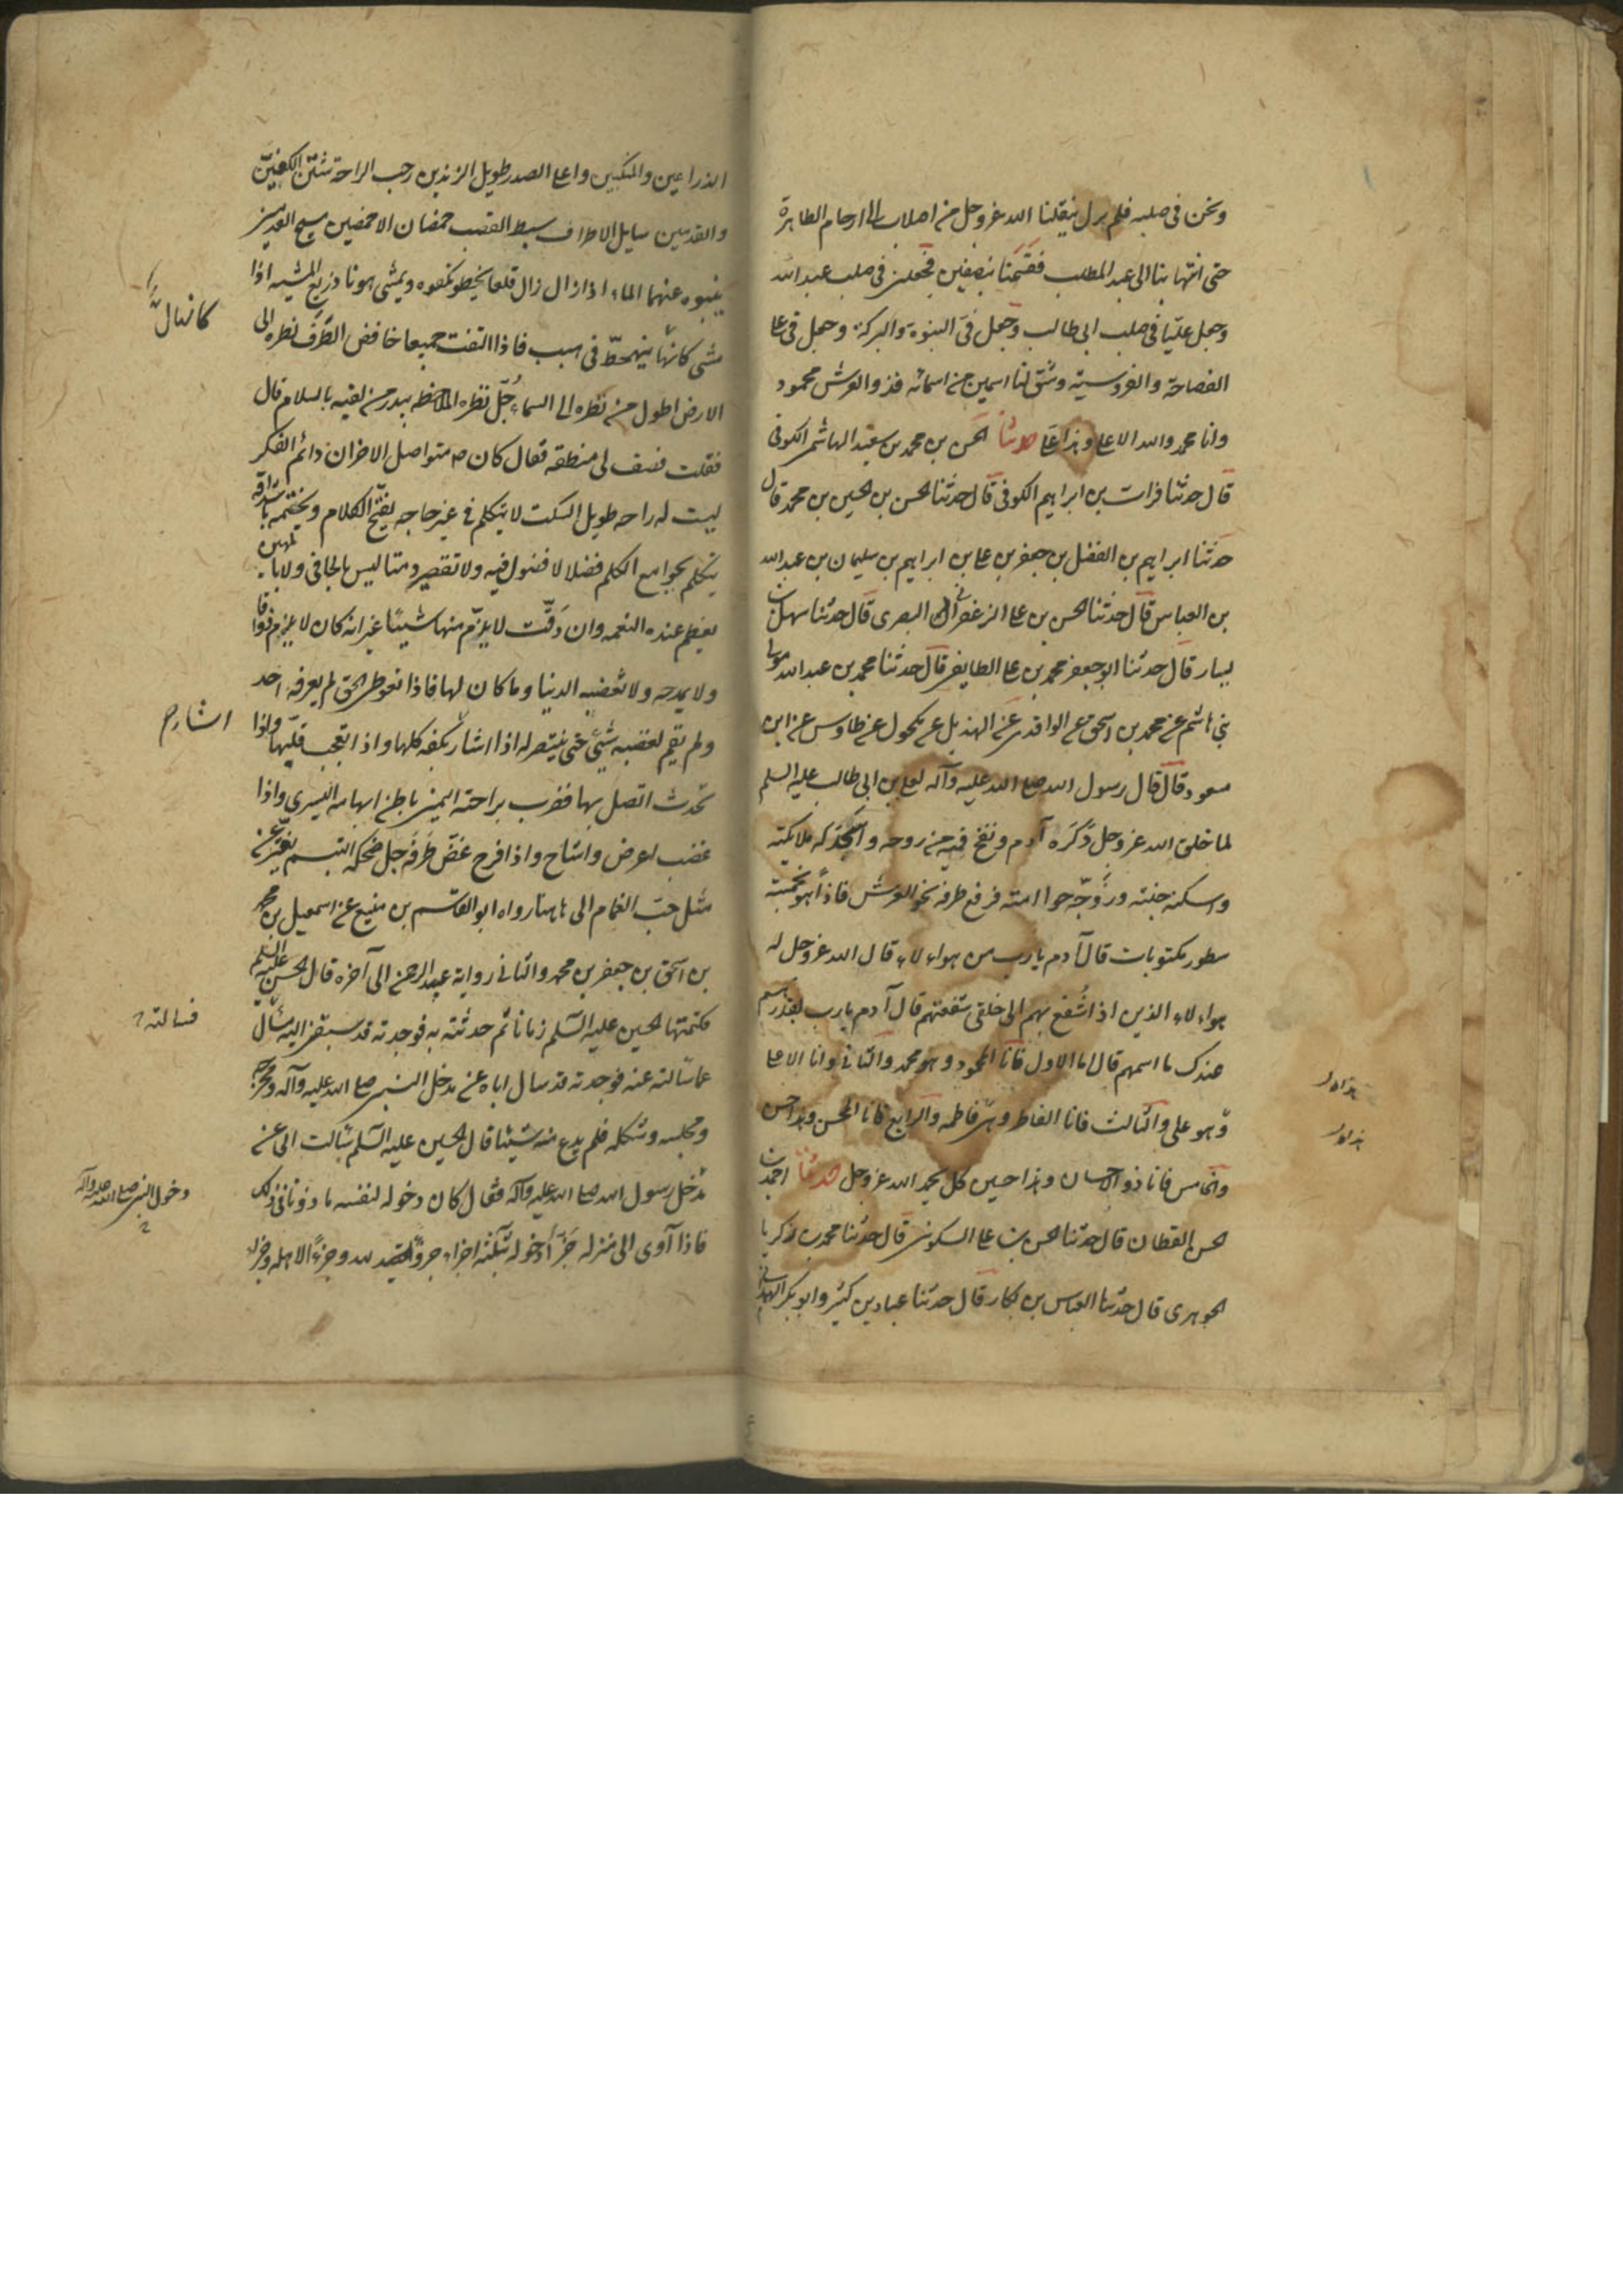 ونحن فى صلبه فلم يزل ينقلنا الله عز وجل من اصلاب الى ارحام الطاهرة
حتى انتها بنا الى عبد المطلب فقسمنا بنصفين فجعلنى فى صلب عبد الله
وجعل عليا فى صلب ابى طالب وجعل فىّ النبوة والبركة وجعل فى على
الفصاحة والفروسية وشق لنا اسمين من اسمائه فذو العرش محمود
وانا محمد والله الاعلى وهذا على حدثنا الحسن بن محمد بن سعيد الهاشمى الكوفى
قال حدثنا فرات بن ابراهيم الكوفى قال حدثنا الحسن بن الحسين بن محمد قال
حدثنا ابراهيم بن الفضل بن جعفر بن على بن ابراهيم بن سليمان بن عبد الله
بن العباس قال حدثنا الحسن بن على الزعفرانى البصرى قال حدثنا سهل بن
يسار قال حدثنا ابو جعفر محمد بن على الطايفى قال حدثنا محمد بن عبد الله مولى
بنى هاشم عن محمد بن اسحق عن الواقدى عن الهذيل عن مكحول عن طاوس عن ابن
مسعود قال قال رسول الله صلى الله عليه وآله لعلى بن ابى طالب عليه السلم
لما خلق الله عز وجل ذكره آدم ونفخ فيه من روحه واسجد له ملايكته
واسكنه جنته وزوّجه حوا امته فرفع طرفه نحو العرش فاذا هو بخمسة
سطور مكتوبات قال آدم يارب من هؤلاء قال الله عز وجل له
هؤلاء الذين اذا شُفع بهم الى خلقى شفعتهم قال آدم يارب بقدرهم
عندك ما اسمهم قال اما الاول فانا المحمود وهو محمد والثانى وانا الاعلى
وهو على والثالث فانا الفاطر وهى فاطمه والرابع فانا المحسن وهذا حسن
والخامس فانا ذو الاحسان وهذا حسين كل يحمد الله عز وجل حدثنا احمد بن
الحسن القطان قال حدثنا الحسن بن على السكونى قال حدثنا محمد بن زكريا
الجوهرى قال حدثنا العباس بن بكار قال حدثنا عباد بن كثير وابو بكر الهذلى
الذراعين والمنكبين واعلى الصدر طويل الزندين رحب الراحة شثن الكفين
والقدمين سايل الاطراف سبط القصب خمصان الاخمصين مسيح القدمين
ينبوه عنهما الماء اذا زال زال قلعا يخطو تكفوه ويمشى هونا ذريع المشيه اذا
مشى كانما ينحط فى صبب فاذا التفت جميعا خافض الطَّرف نظره الى
الارض اطول من نظره الى السماء جُلّ نظره الملاحظه يبدر من لقيه بالسلام قال
فقلت فصف لى منطقه فقال كان ص متواصل الاحزان دائم الفكر
ليست له راحه طويل السكت لا يتكلم فى غير حاجه يفتح الكلام ويختمه باشداقه
يتكلم بجوامع الكلم فضلا لا فضول فيه ولا تقصير دمثا ليس بالجافى ولا بالمهين
يعظم عنده النعمه وان دَقّت لا يذمّ منها شيئا غير انه كان لا يذم ذواقا
ولا يمدحه ولا تُغضبه الدنيا وما كان لها فاذا تعوطى الحق لم يعرفه احد
ولم يقم لغضبه شىء حتى ينتصر له اذا اشار بكفه كلها واذا تعجب قلبها واذا
تحدث اتصل بها فضرب براحته اليمنى باطن ابهامه اليسرى واذا
غضب اعرض واشاح واذا فرح غضّ طرفه جل ضحكه التبسم يفترّ عن
مثل حب الغمام الى هاهنا رواه ابو القاسم بن منيع عن اسمعيل بن محمد
بن اسحق بن جعفر بن محمد والثانى رواية عبد الرحمن الى آخره قال الحسن عليه السلم
فكتمتها الحسين عليه السّلم زمانا ثم حدثته به فوجدته قد سبقنى اليه يسأل
عما سالته عنه فوجدته قد سال اباه عن مدخل النبى صلى الله عليه وآله ومخرجه
ومجلسه وشكله فلم يدع منه شيئا قال الحسين عليه السّلم سالت ابى عن
مدخل رسول الله صلى الله عليه وآله فقال كان دخوله لنفسه ماذونا فى ذلك
فاذا آوى الى منزله جزّأ دخوله ثلثة اجزاء جزءً لله وجزءً لاهله وجزء
كانما
فسالته
دخول النبى صلى الله عليه وآله